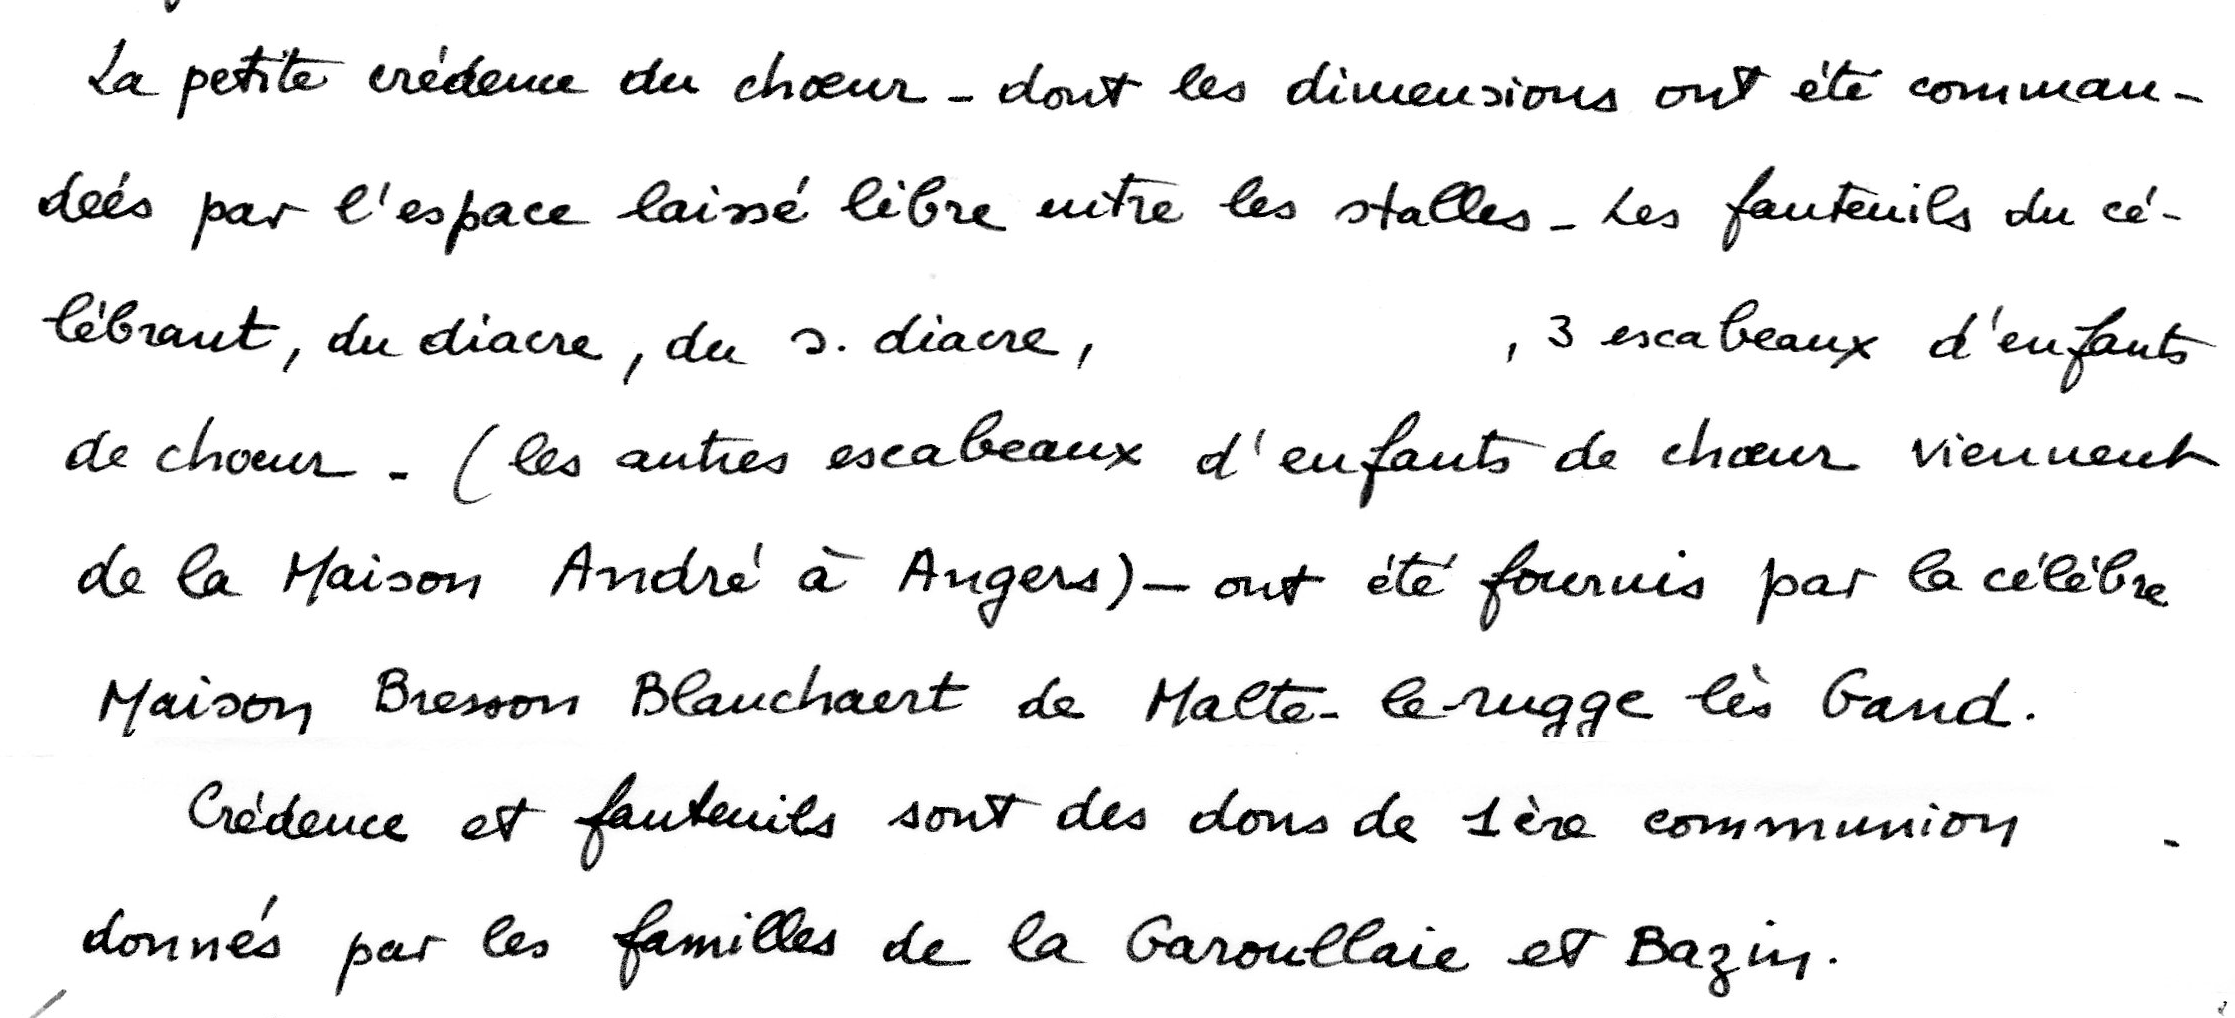 La petite crédence du chœur - dont les dimensions ont été comman-
deés par l'espace laissé libre entre les stalles - Les fauteuils du cé-
lébrant, du diacre, du s. diacre, , 3 escabeaux d'enfants
de chœur - (les autres escabeaux d'enfants de chœur viennent
de la Maison André à Angers) - ont été fournis par la célèbre
Maison Bresson Blanchaert de Malte-le-rugge lès Gand.
Crédence et fauteuils sont des dons de 1ère communion -
donnés par les familles de la Garoullaie et Bazin.